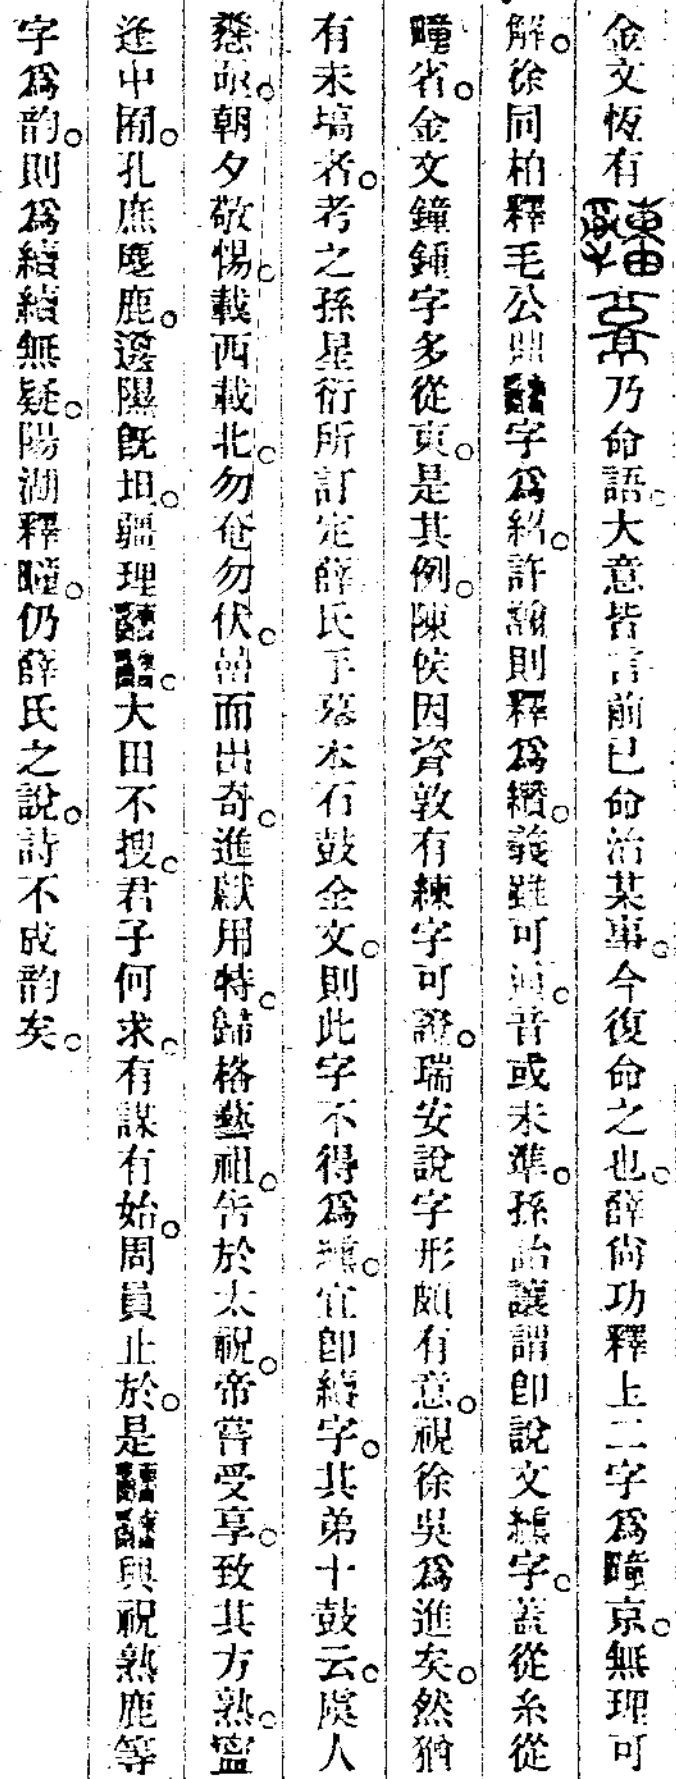 金文恆有乃命語。大意皆言前已命治某事。今復命之也。薛尙功釋上二字爲疃京。無理可
解。徐同柏釋毛公鼎字爲紹。許瀚則釋爲繙。義雖可通。音或未準。孫詒讓謂卽說文字。蓋從糸從
疃省。金文鐘鍾字多從東。是其例。陳侯因資敦有練字可證。瑞安說字形頗有意。視徐吳爲進矣。然猶
有未塙者。考之孫星衍所訂定薛氏手摹本石鼓金文。則此字不得爲。宜卽續字。其弟十鼓云。虞人
憖亟。朝夕敬惕。載西載北。勿奄勿伏。而出奇。進獻用特。歸格藝祖。告於太祝。帝嘗受享。致其方熟。寍
逢中囿。孔庶麀鹿。邍隰旣坦。疆理。大田不搜。君子何求。有謀有始。周員止於。是興祝熟鹿等
字爲韵。則爲續續無疑。陽湖釋疃。仍薛氏之說。詩不成韵矣。